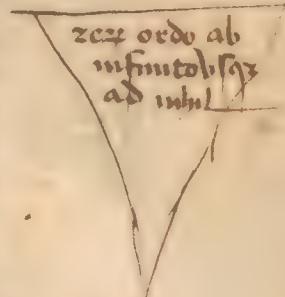 zcꝝ ordo ab
infinito vſqꝫ
ad nihil